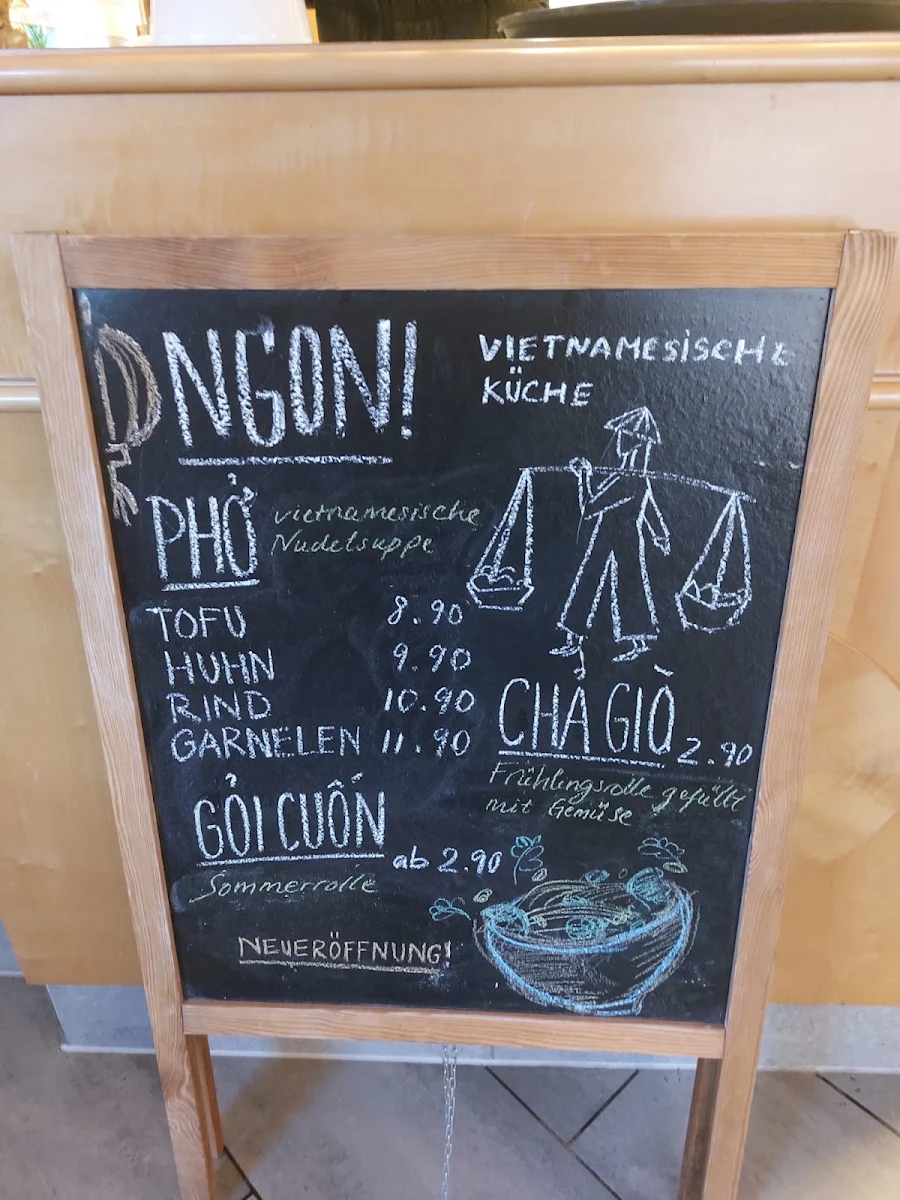 NGON!
VIETNAMESISCHE
KÜCHE
PHỞ
vietnamesische
Nudelsuppe
TOFU 8.90
HUHN 9.90
RIND 10.90
GARNELEN 11.90
CHẢ GIÒ 2.90
Frühlingsrolle gefüllt
mit Gemüse
GỎI CUỐN
ab 2.90
Sommerrolle
NEUERÖFFNUNG!